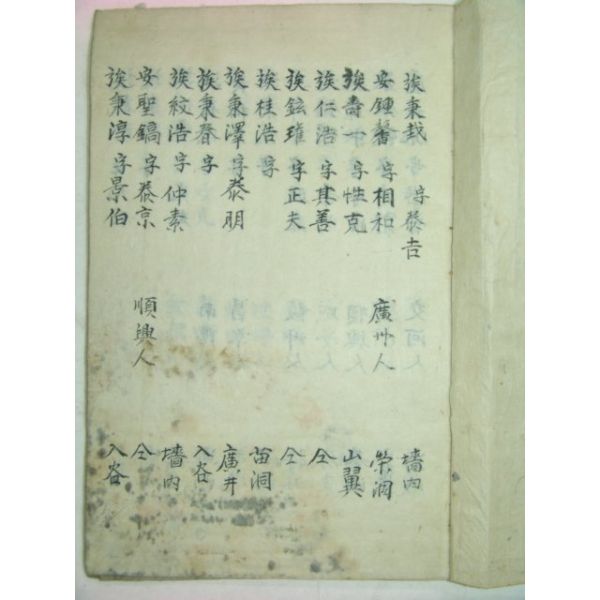 族秉越 字泰吉 墻內
安鍾馨 字相和 廣州人 崇洞
族壽一 字性克 山翼
族仁浩 字其善 仝
族鉉璀 字正夫 仝
族桂浩 字 苗洞
族秉澤 字泰明 廣井
族秉春 字 入谷
族紋浩 字仲素 墻內
安聖鎬 字泰京 順興人 仝
族秉淳 字景伯 入谷